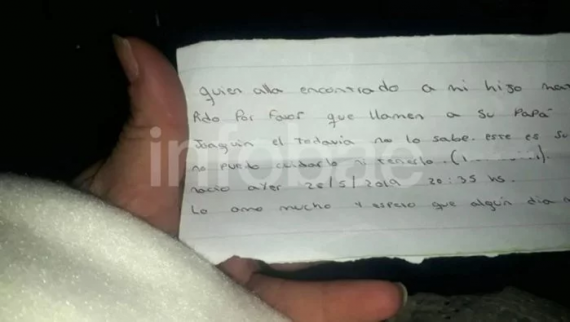 quien alla encontrado a mi hijo
Pido Por Favor que llamen a Su PaPá
Joaquin el Todavia no lo sabe. este es su
no puedo cuidarlo ni tenerlo. (1...........).
nacio ayer 28/5/2019 20:35 hs.
Lo amo mucho y espero que algún dia
infobae